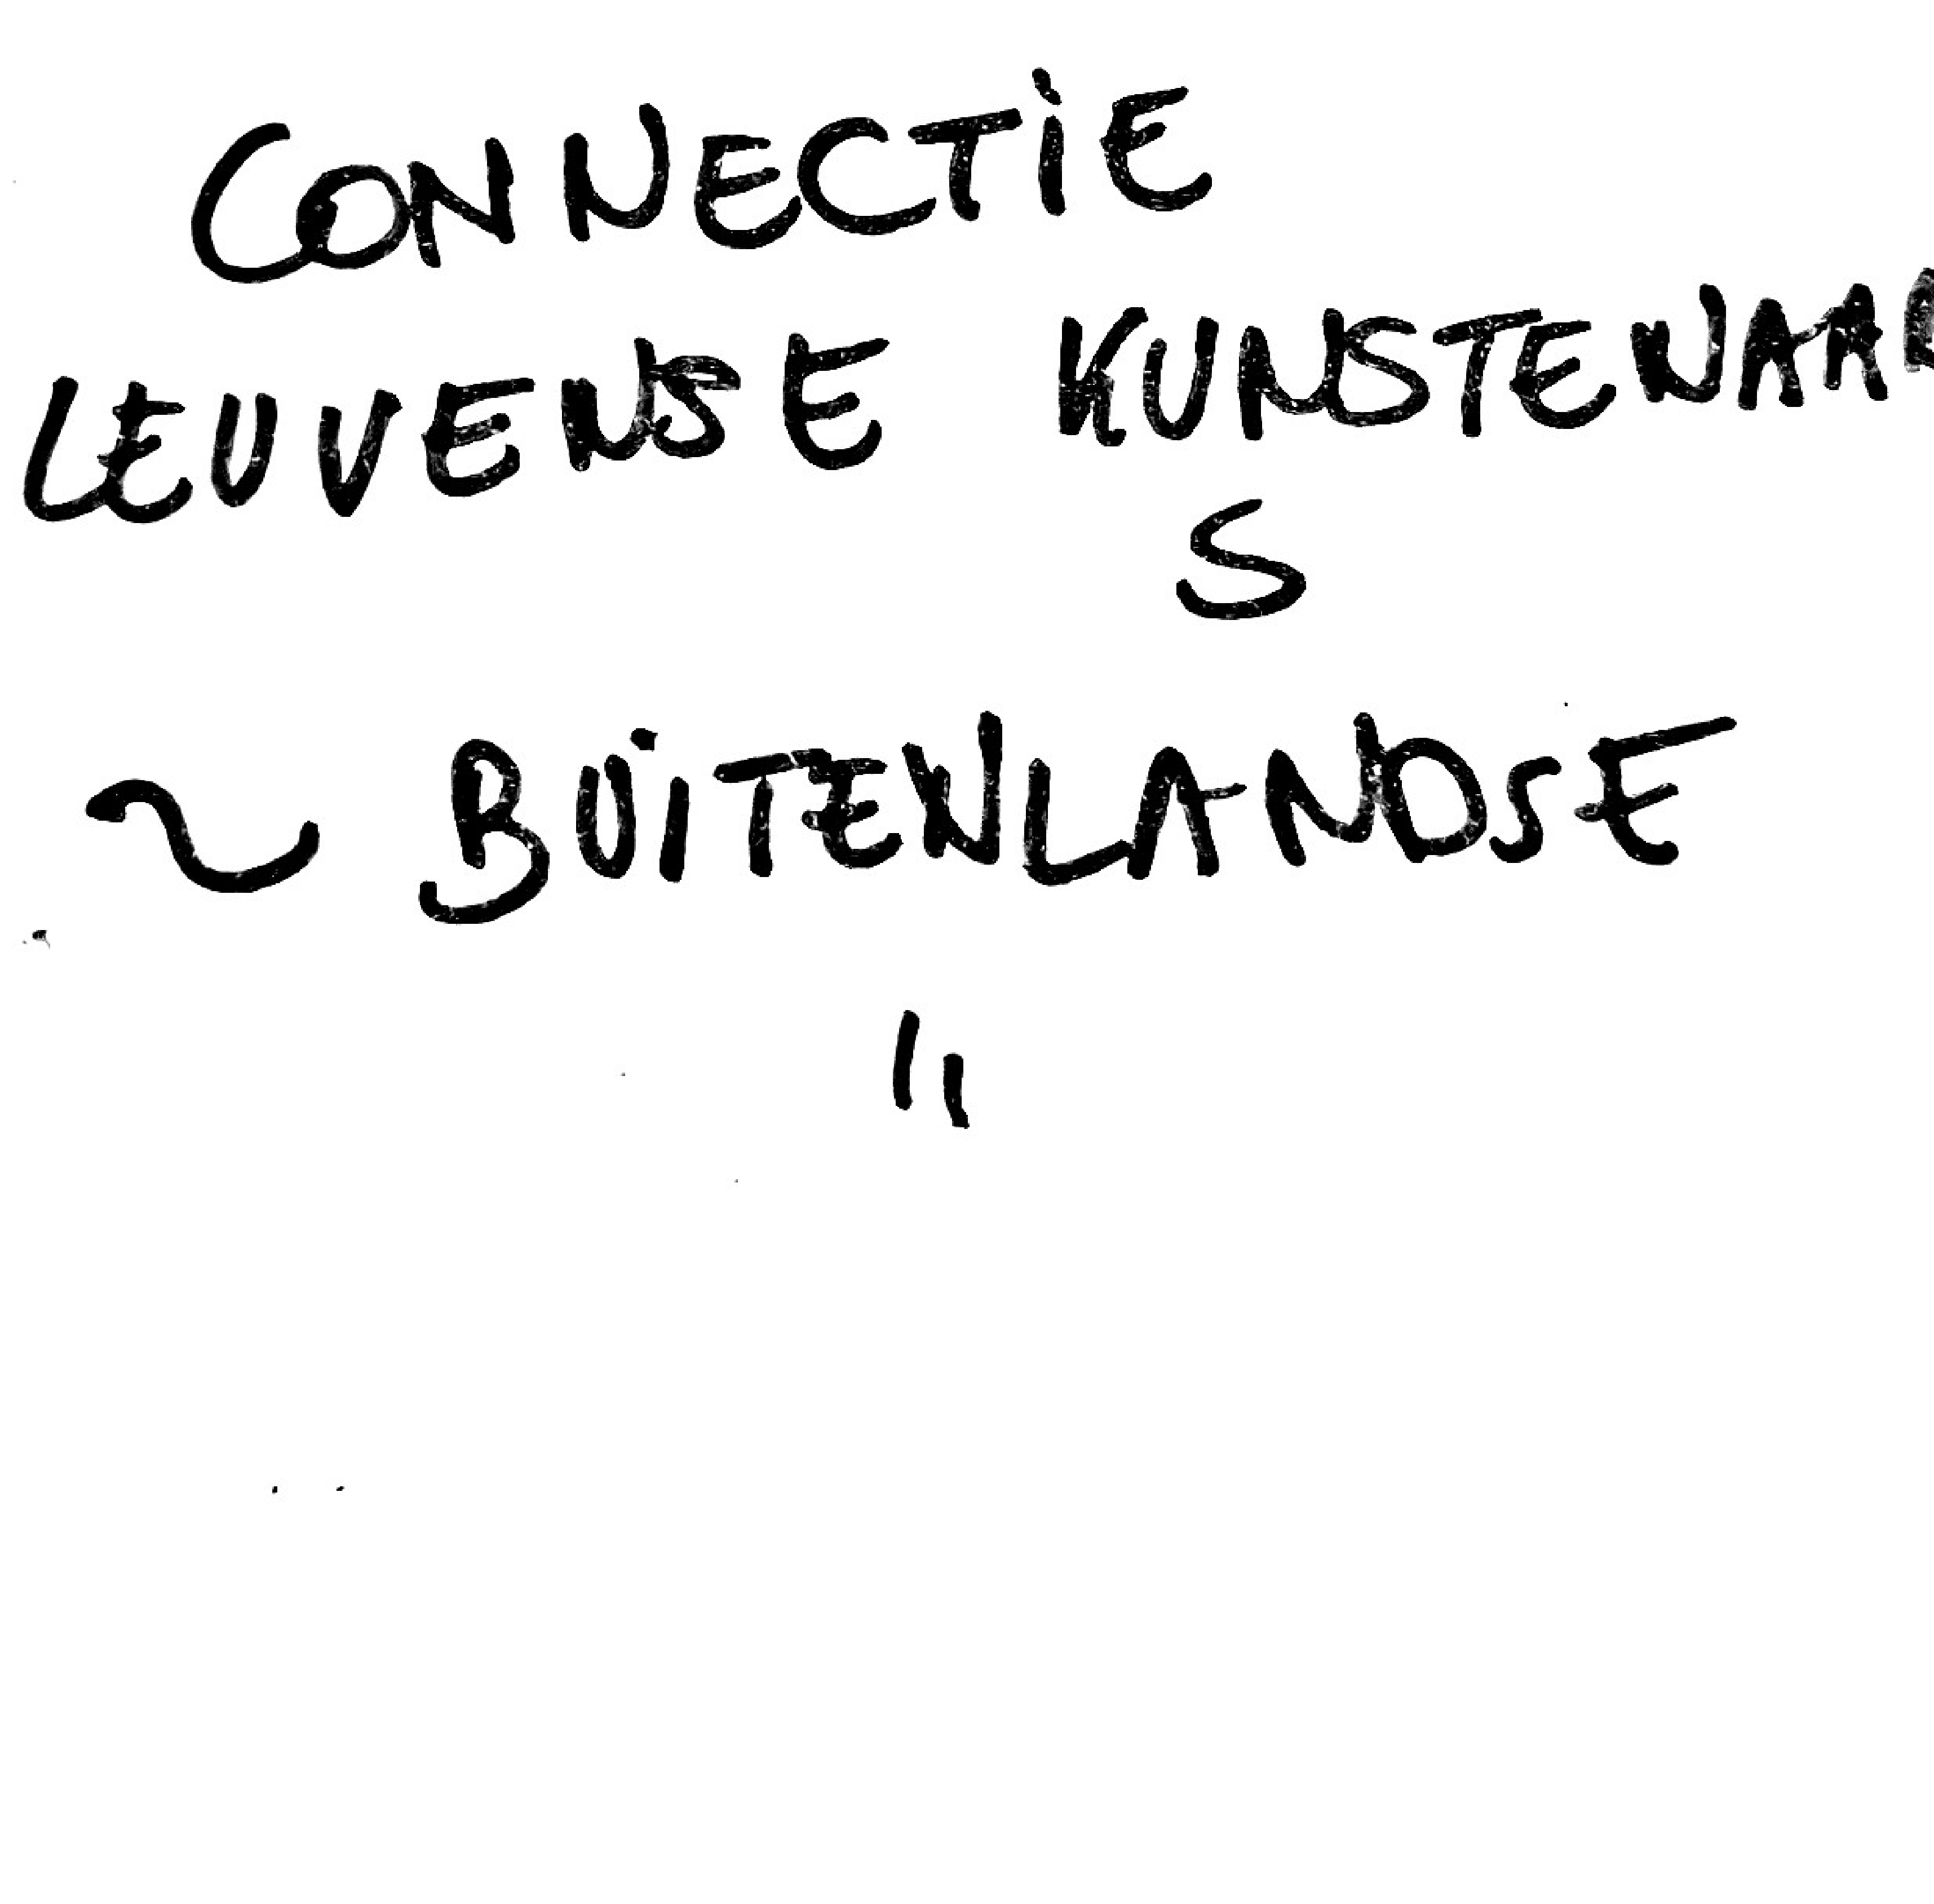 CONNECTIE
LEUVENSE KUNSTENAAR
S
~ BUITENLANDSE
"